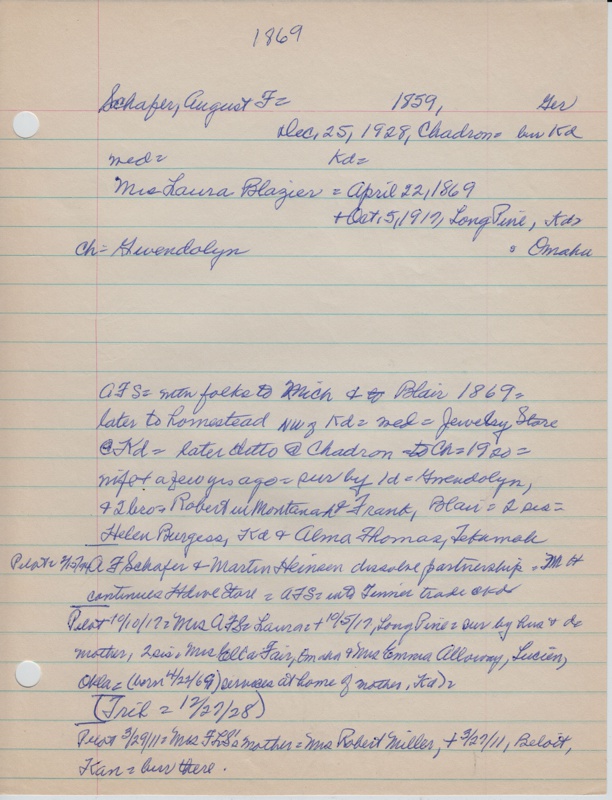 1869
Schafer, August F = 1859, Ger
Dec, 25, 1928, Chadron = bur Kd
med = Kd =
Mrs Laura Blazier = April 22, 1869
+ Oct. 5, 1917, Long Pine, Kd =
ch = Gwendolyn = Omaha
AFS = folks to Mich & to Blair 1869 =
later to homestead NW of Kd = med = Jewelry Store
@ Kd = later ditto @ Chadron to 1920 =
wife + a few yrs ago = sur by 1d = Gwendolyn,
& 2 bro = Robert in Montana & Frank, Blair = 2 sis =
Helen Burgess, Kd & Alma Thomas, Tekamah
Pilot = AF Schafer & Martin Heinsen dissolve partnership = M H
continues Hdwe Store = AFS = into Tinner trade @ Kd
Pilot 10/10/17 = Mrs AFS = Laura = + 10/5/17, Long Pine = sur by hus & da
mother, 2 sis = Mrs Ella Fair, Omaha & Mrs Emma Alloway, Lucien,
Okla = (born 4/22/69) services at home of mother, Kd) =
(Trib = 12/27/28)
Pilot 3/29/11 = Mrs mother = Mrs Robert Miller, + 3/27/11, Beloit,
Kan = bur there.